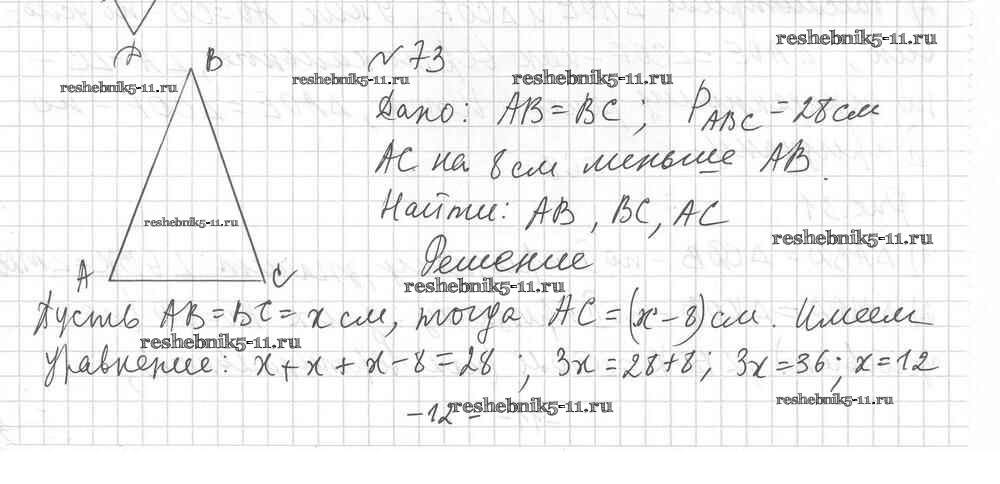 reshebnik5-11.ru
B
№ 73
reshebnik5-11.ru reshebnik5-11.ru reshebnik5-11.ru
Дано: AB = BC ; P ABC = 28 см
AC на 8 см меньше AB.
reshebnik5-11.ru
Найти: AB, BC, AC
reshebnik5-11.ru
Решение
A C
reshebnik5-11.ru
Пусть AB = BC = x см, тогда AC = (x - 8) см. Имеем
reshebnik5-11.ru
уравнение: x + x + x - 8 = 28 ; 3x = 28 + 8 ; 3x = 36 ; x = 12
reshebnik5-11.ru
- 12 - reshebnik5-11.ru